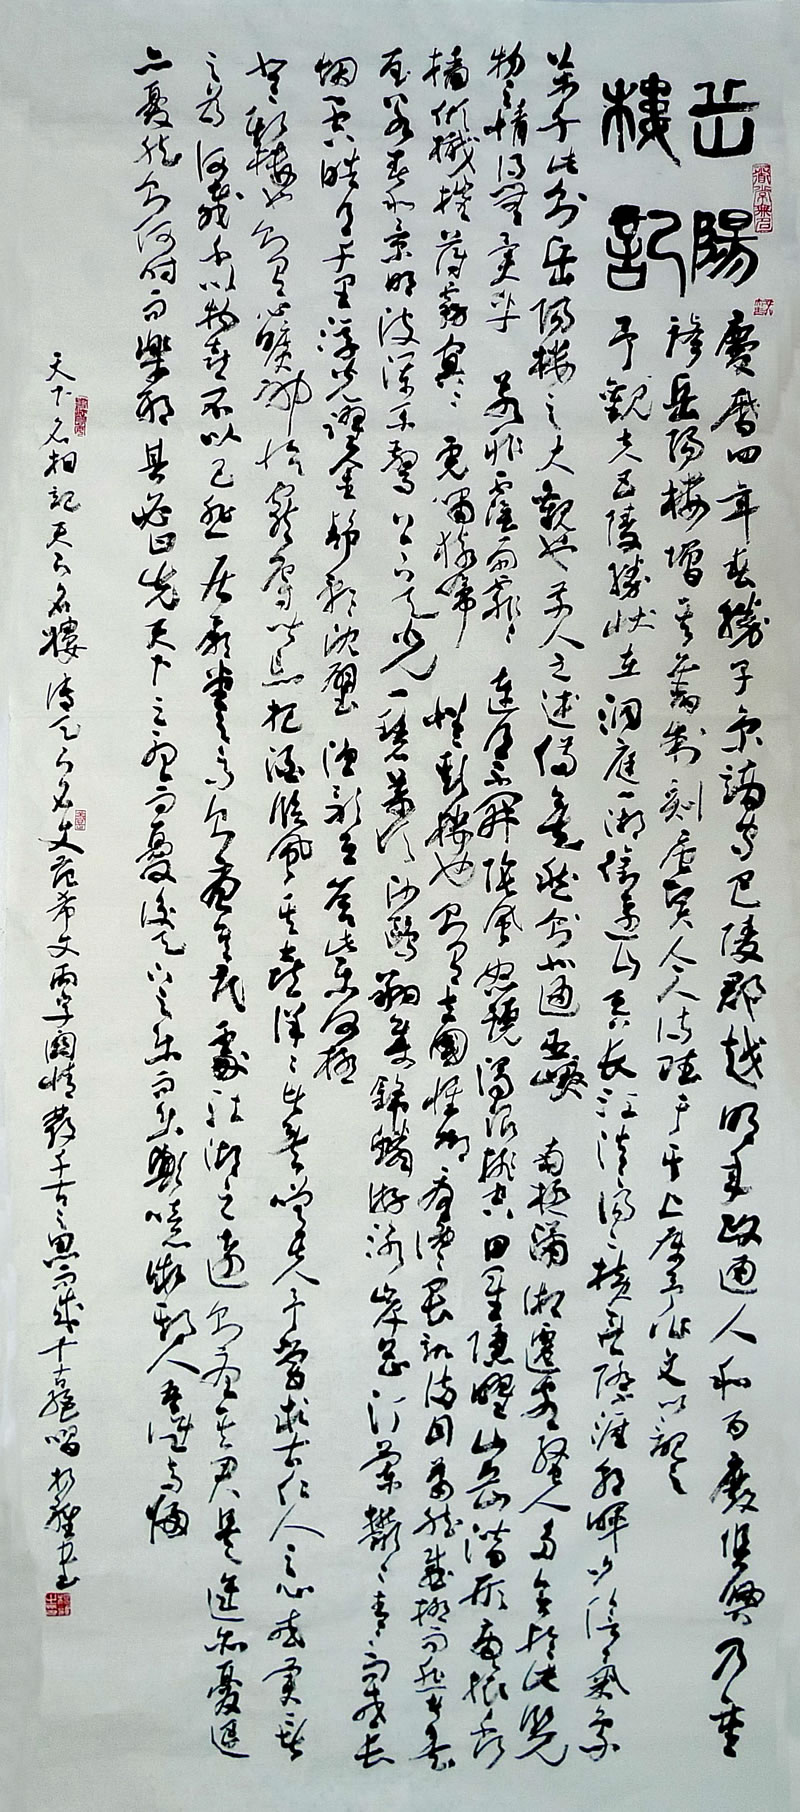 岳陽
樓記
慶曆四年春滕子京謫守巴陵郡越明年政通人和百廢俱興乃重
修岳陽樓增其舊制刻唐賢今人詩賦于其上屬予作文以記之
予觀夫巴陵勝狀在洞庭一湖銜遠山吞長江浩浩湯湯橫無際涯朝暉夕陰氣象
萬千此則岳陽樓之大觀也前人之述備矣然則北通巫峽南極瀟湘遷客騷人多會於此覽
物之情得無異乎若夫霪雨霏霏連月不開陰風怒號濁浪排空日星隱曜山岳潛形商旅不行
檣傾楫摧薄暮冥冥虎嘯猿啼登斯樓也則有去國懷鄉憂讒畏譏滿目蕭然感極而悲者矣
至若春和景明波瀾不驚上下天光一碧萬頃沙鷗翔集錦鱗游泳岸芷汀蘭鬱鬱青青而或長
烟一空皓月千里浮光躍金靜影沈璧漁歌互答此樂何極
登斯樓也則有心曠神怡寵辱皆忘把酒臨風其喜洋洋者矣嗟夫予嘗求古仁人之心或異二者
之為何哉不以物喜不以己悲居廟堂之高則憂其民處江湖之遠則憂其君是進亦憂退
亦憂然則何時而樂耶其必曰先天下之憂而憂後天下之樂而樂歟噫微斯人吾誰與歸
天下名相記天下名樓傳天下名文范希文兩字關情發千古之思而成千古絕唱